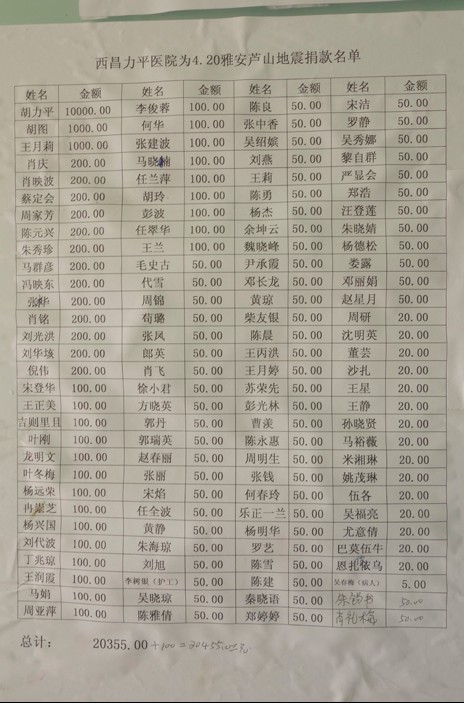 西昌力平医院为4.20雅安芦山地震捐款名单
姓名 金额 姓名 金额 姓名 金额 姓名 金额
胡力平 10000.00 李俊蓉 100.00 陈良 50.00 宋洁 50.00
胡图 1000.00 何华 100.00 张中香 50.00 罗静 50.00
王月莉 1000.00 张建波 100.00 吴绍嫔 50.00 吴秀娜 50.00
肖庆 200.00 马晓楠 100.00 刘燕 50.00 黎自群 50.00
肖映波 200.00 任兰萍 100.00 王莉 50.00 严显会 50.00
蔡定会 200.00 胡玲 100.00 陈勇 50.00 郑浩 50.00
周家芳 200.00 彭波 100.00 杨杰 50.00 汪登莲 50.00
陈元兴 200.00 任翠华 100.00 余坤云 50.00 朱晓婧 50.00
朱秀珍 200.00 王兰 100.00 魏晓峰 50.00 杨德松 50.00
马群彦 200.00 毛史古 50.00 尹承霞 50.00 娄露 50.00
冯映东 200.00 代雪 50.00 邓长龙 50.00 邓丽娟 50.00
张华 200.00 周锦 50.00 黄琼 50.00 赵星月 50.00
肖铭 200.00 苟璐 50.00 柴友银 50.00 周研 20.00
刘光洪 200.00 张凤 50.00 陈晨 50.00 沈明英 20.00
刘华垓 200.00 郎英 50.00 王丙洪 50.00 董芸 20.00
倪伟 200.00 肖飞 50.00 王月婷 50.00 沙扎 20.00
宋登华 100.00 徐小君 50.00 苏荣先 50.00 王星 20.00
王正美 100.00 方晓英 50.00 彭光林 50.00 王静 20.00
吉则里且 100.00 郭丹 50.00 曹羡 50.00 孙晓贤 20.00
叶刚 100.00 郭瑞英 50.00 陈永惠 50.00 马裕薇 20.00
龙明文 100.00 赵春丽 50.00 周明生 50.00 米湘琳 20.00
叶冬梅 100.00 张丽 50.00 张钱 50.00 姚茂琳 20.00
杨远荣 100.00 宋焰 50.00 何春玲 50.00 伍各 20.00
冉崇芝 100.00 任全波 50.00 乐正一兰 50.00 吴福亮 20.00
杨兴国 100.00 黄静 50.00 杨明华 50.00 尤意倩 20.00
刘代波 100.00 朱海琼 50.00 罗艺 50.00 巴莫伍牛 20.00
丁兆琼 100.00 刘旭 50.00 陈雪 50.00 恩扎依乌 20.00
王润霞 100.00 李树银（护工） 50.00 陈建 50.00 吴春梅（病人） 5.00
马娟 100.00 吴晓琼 50.00 秦晓语 50.00 50.00
周亚萍 100.00 陈雅倩 50.00 郑婷婷 50.00 50.00
总计： 20355.00+100=20455.00元